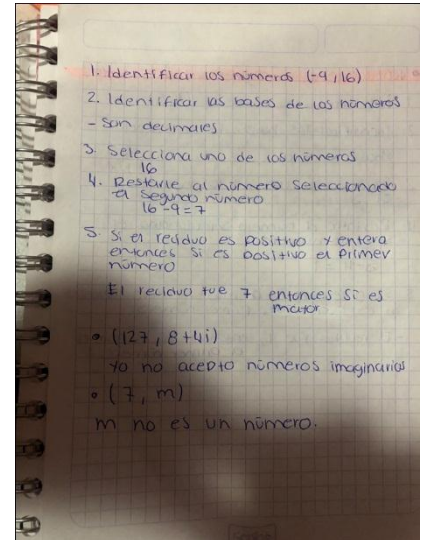 1. Identificar los números (-9, 16)
2. Identificar las bases de los números
- Son decimales
3. Selecciona uno de los números
16
4. Restarle al número seleccionado
el segundo número
16 - 9 = 7
5. Si el residuo es positivo y entera
entonces si es positivo el primer
número
El reciduo fue 7 entonces si es
mayor
• (127, 8+4i)
Yo no acepto números imaginarios
• (7, m)
m no es un número.